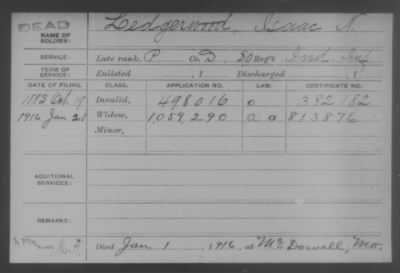 DEAD
NAME OF SOLDIER: Ledgerwood, Isaac N.
SERVICE: Late rank, P Co. D, 80 Reg't Ind Inf
TERM OF SERVICE: Enlisted , 1 Discharged , 1
DATE OF FILING. CLASS. APPLICATION NO. LAW. CERTIFICATE NO.
1883 Oct. 19 Invalid, 498016 o 382182
1916 Jan 21 Widow, 1059,290 a o 813876
Minor,
ADDITIONAL SERVICES:
REMARKS:
Died Jan 1, 1916, at McDowell, Mo.